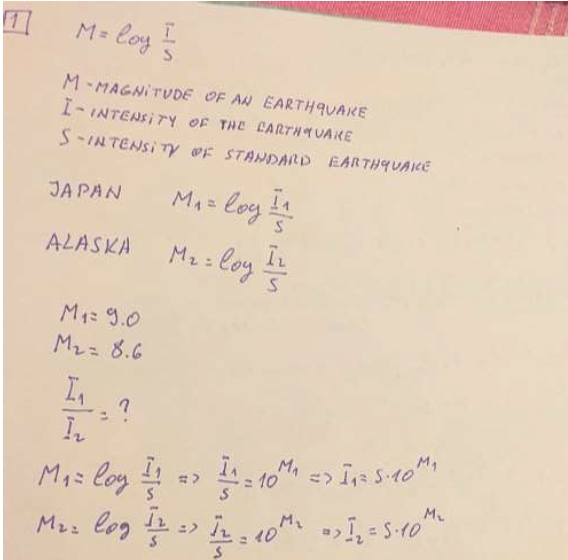 1
M = log I/S
M - MAGNITUDE OF AN EARTHQUAKE
I - INTENSITY OF THE EARTHQUAKE
S - INTENSITY OF STANDARD EARTHQUAKE
JAPAN M₁ = log I₁/S
ALASKA M₂ = log I₂/S
M₁ = 9.0
M₂ = 8.6
I₁/I₂ = ?
M₁ = log I₁/S => I₁/S = 10^M₁ => I₁ = S·10^M₁
M₂ = log I₂/S => I₂/S = 10^M₂ => I₂ = S·10^M₂